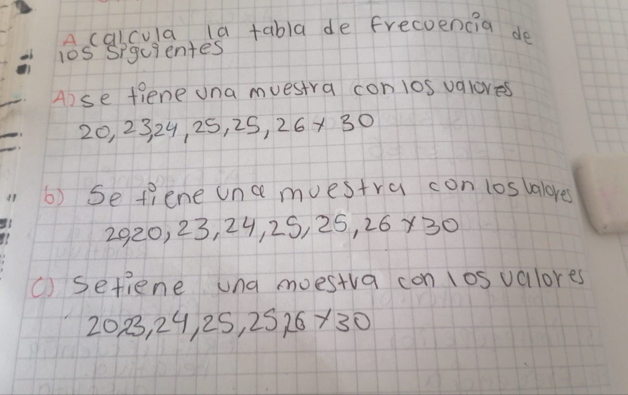 A calcula la tabla de frecuencia de
los siguientes
A) se tiene una muestra con los valores
20, 23, 24, 25, 25, 26 y 30
b) Se tiene una muestra con los valores
20,20, 23, 24, 25, 25, 26 y 30
c) Se tiene una moestra con los valores
20,23, 24, 25, 25,26 y 30